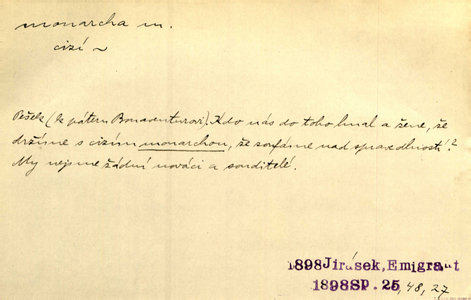 monarcha m.
cizí ~
Pešek (k páteru Bonaventurovi): Kdo nás do toho hnal a žene, že
držíme s cizím monarchou, že zoufáme nad spravedlností!?
My nejsme žádní nováci a sonditelé.
1898 Jirásek, Emigrant
1898 SP. 25, 48, 27